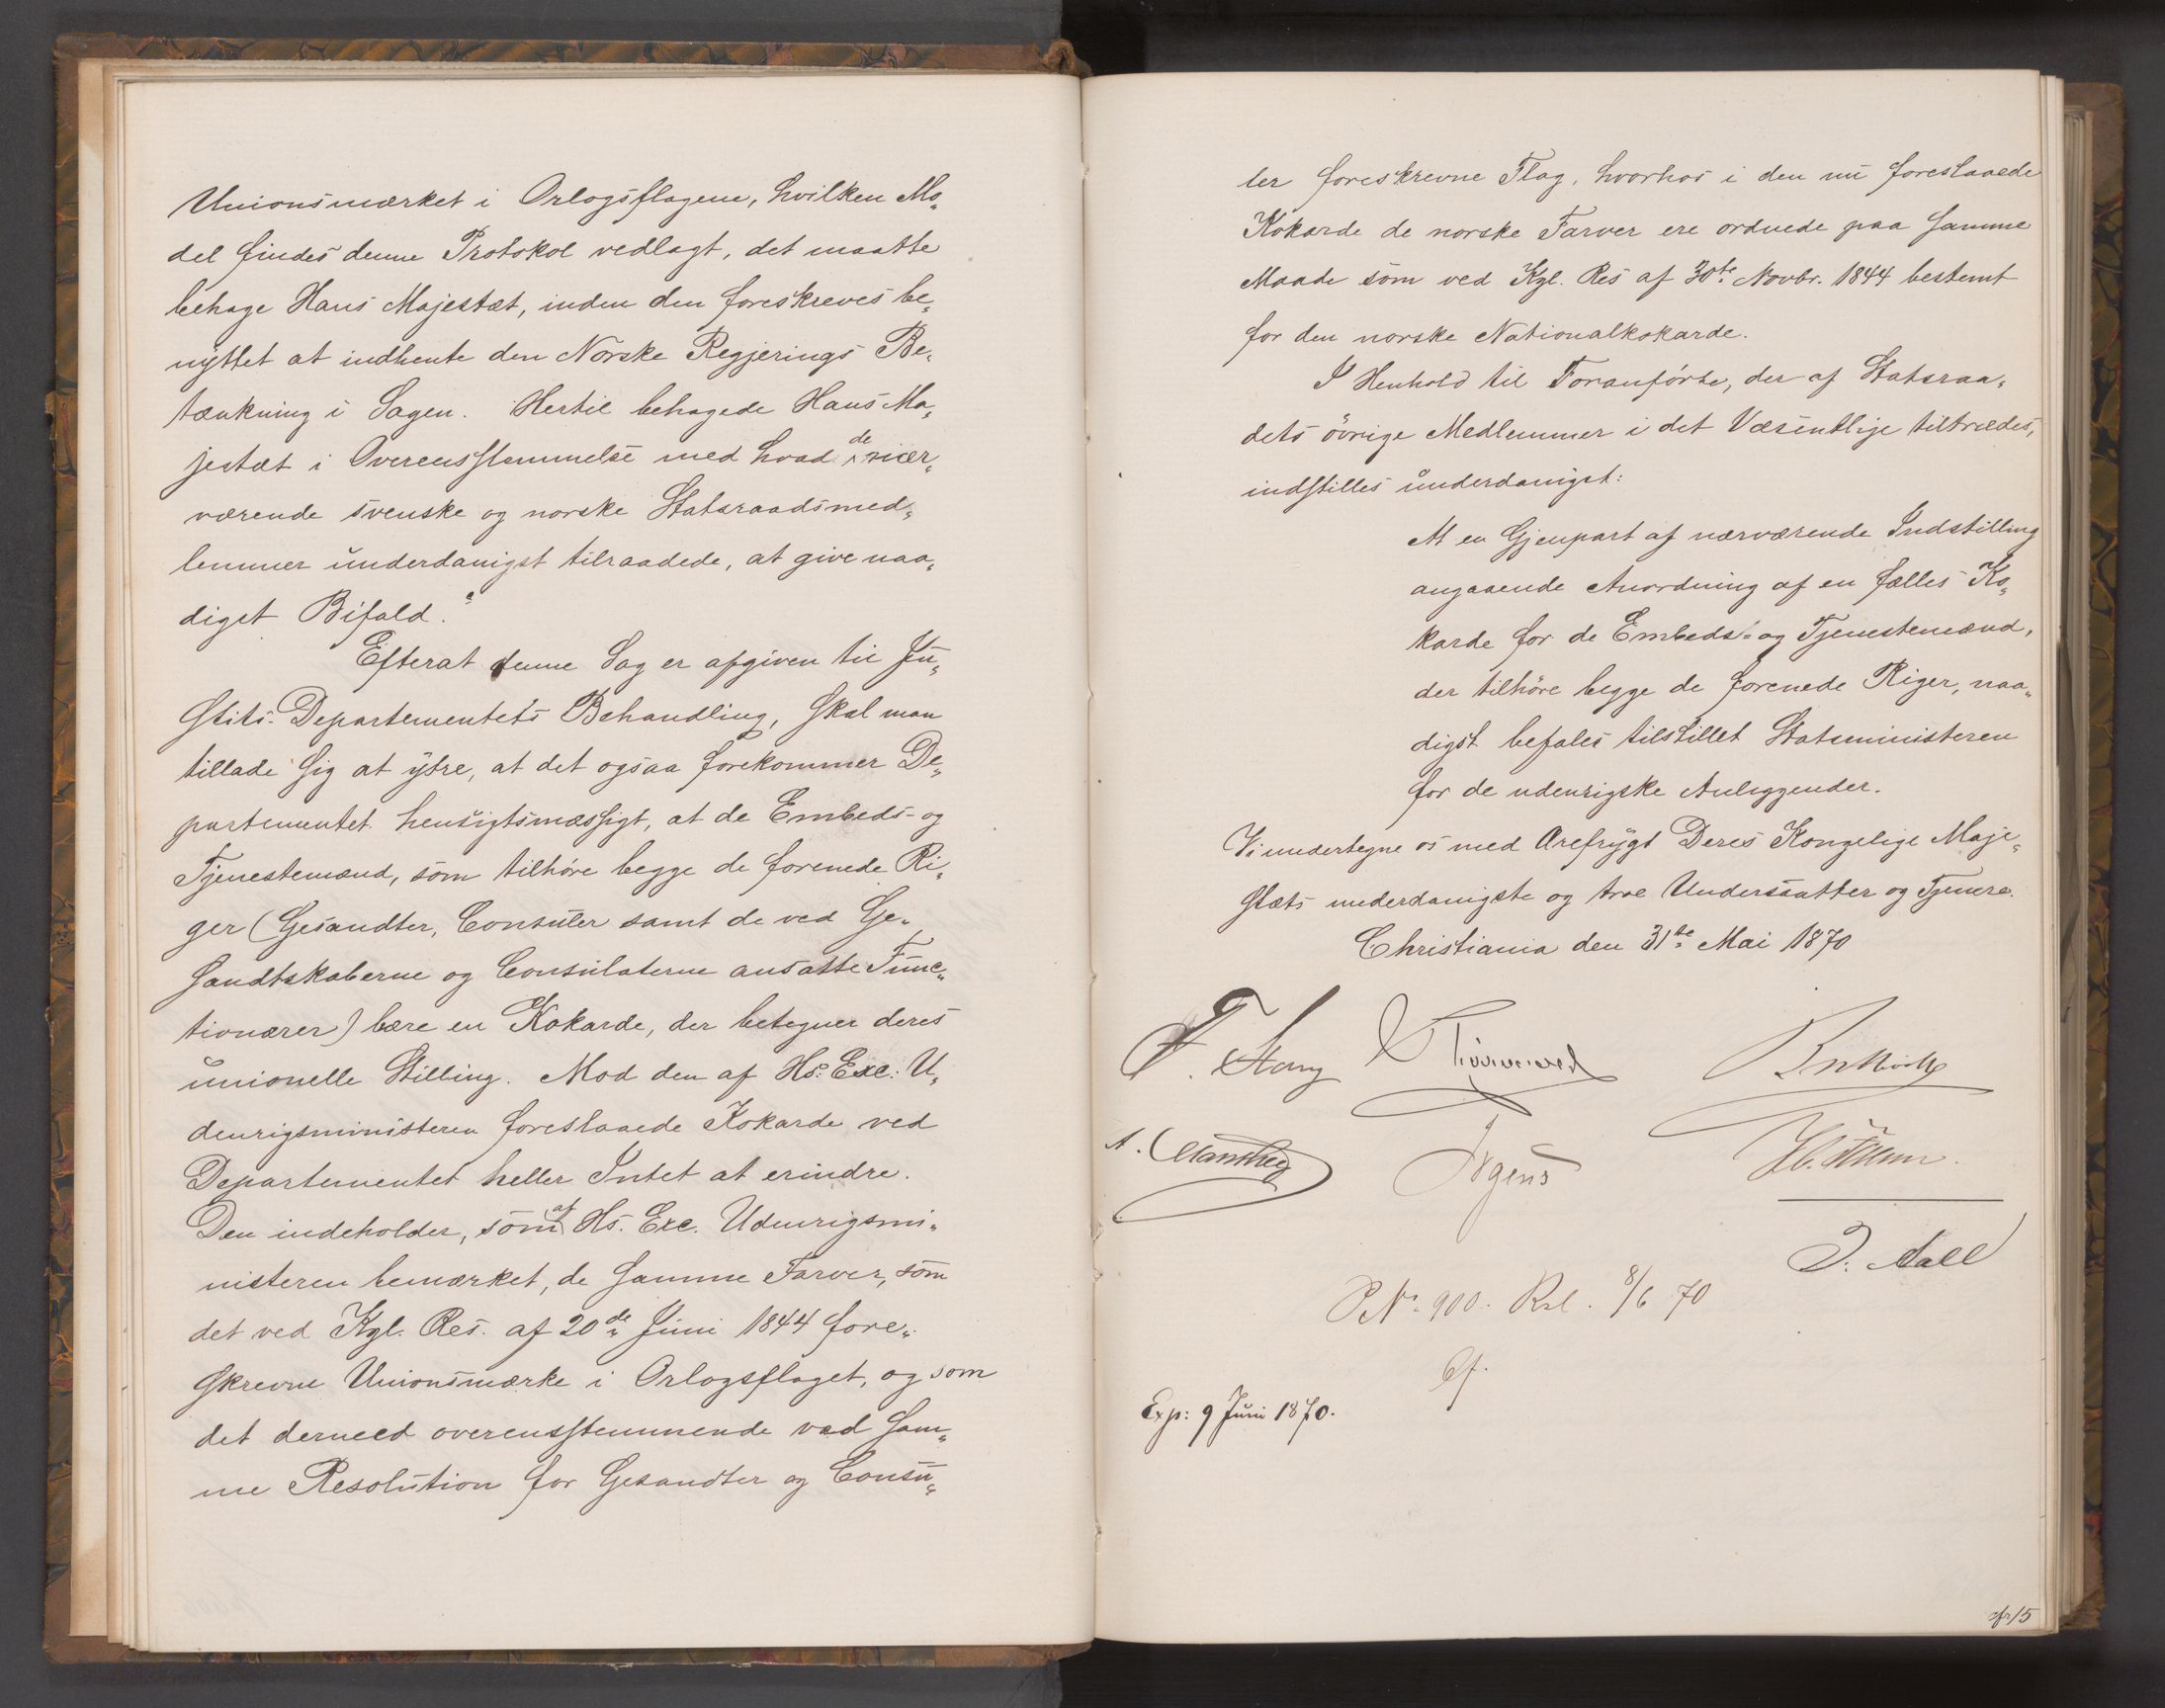 Unionsmærket i Orlogsflagene, hvilken Mo„
del findes denne Protokol vedlagt, det maatte
behage Hans Majestæt, inden den foreskreves be„
nyttet at indhente den Norske Regjerings Be„
tænkning i Sagen. Hertil behagede Hans Ma„
jestæt i Overensstemmelse med hvad de nær„
værende svenske og norske Statsraadsmed„
lemmer underdanigst tilraadede, at give naa„
digst Bifald."
Efterat denne Sag er afgiven til Ju„
stits-Departementets Behandling, skal man
tillade sig at ytre, at det ogsaa forekommer De„
partementet hensigtsmæssigt, at de Embeds- og
Tjenestemænd, som tilhøre begge de forenede Ri„
ger (Gesandter, Consuler samt de ved Ge„
sandtskaberne og Consulaterne ansatte Func„
tionærer) bære en Kokarde, der betegner deres
unionelle Stilling. Mod den af Hs. Exc. U„
denrigsministeren foreslaaede Kokarde ved
Departementet heller Intet at erindre.
Den indeholder, som af Hs. Exc. Udenrigsmi„
nisteren bemærket, de samme Farver, som
det ved Kgl. Res. af 20de Juni 1844 fore„
skrevne Unionsmærke i Orlogsflaget, og som
det dermed overensstemmende ved sam„
me Resolution for Gesandter og Consu„
ler foreskrevne Flag, hvorhos i den nu foreslaaede
Kokarde de norske Farver ere ordnede paa samme
Maade som ved Kgl. Res af 30te Novbr. 1844 bestemt
for den norske Nationalkokarde.
I Henhold til Foranførte, der af Statsraa„
dets øvrige Medlemmer i det Væsentlige tiltrædes,
indstilles underdanigst:
At en Gjenpart af nærværende Indstilling
angaaende Anordning af en fælles Ko„
karde for de Embeds- og Tjenestemænd,
der tilhøre begge de forenede Riger, naa„
digst befales tilstillet Statsministeren
for de udenrigske Anliggender.
Vi undertegne os med Ærefrygt Deres Kongelige Maje„
stæts underdanigste og troe Undersaatter og Tjenere.
Christiania den 31te Mai 1870
F. Stang
A. Manthey Irgens
J. Aall
P.No. 900. Rsl. 8/6 70
Cf.
Exp: 9 Juni 1870.